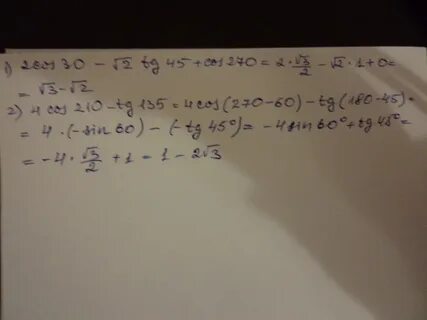 1) 2cos 30 - √2 tg 45 + cos 270 = 2·√3/2 - √2·1 + 0 =
= √3 - √2
2) 4 cos 210 - tg 135 = 4 cos (270 - 60) - tg (180 - 45) =
= 4 · (- sin 60) - (- tg 45°) = - 4 sin 60° + tg 45° =
= - 4 · √3/2 + 1 = 1 - 2√3